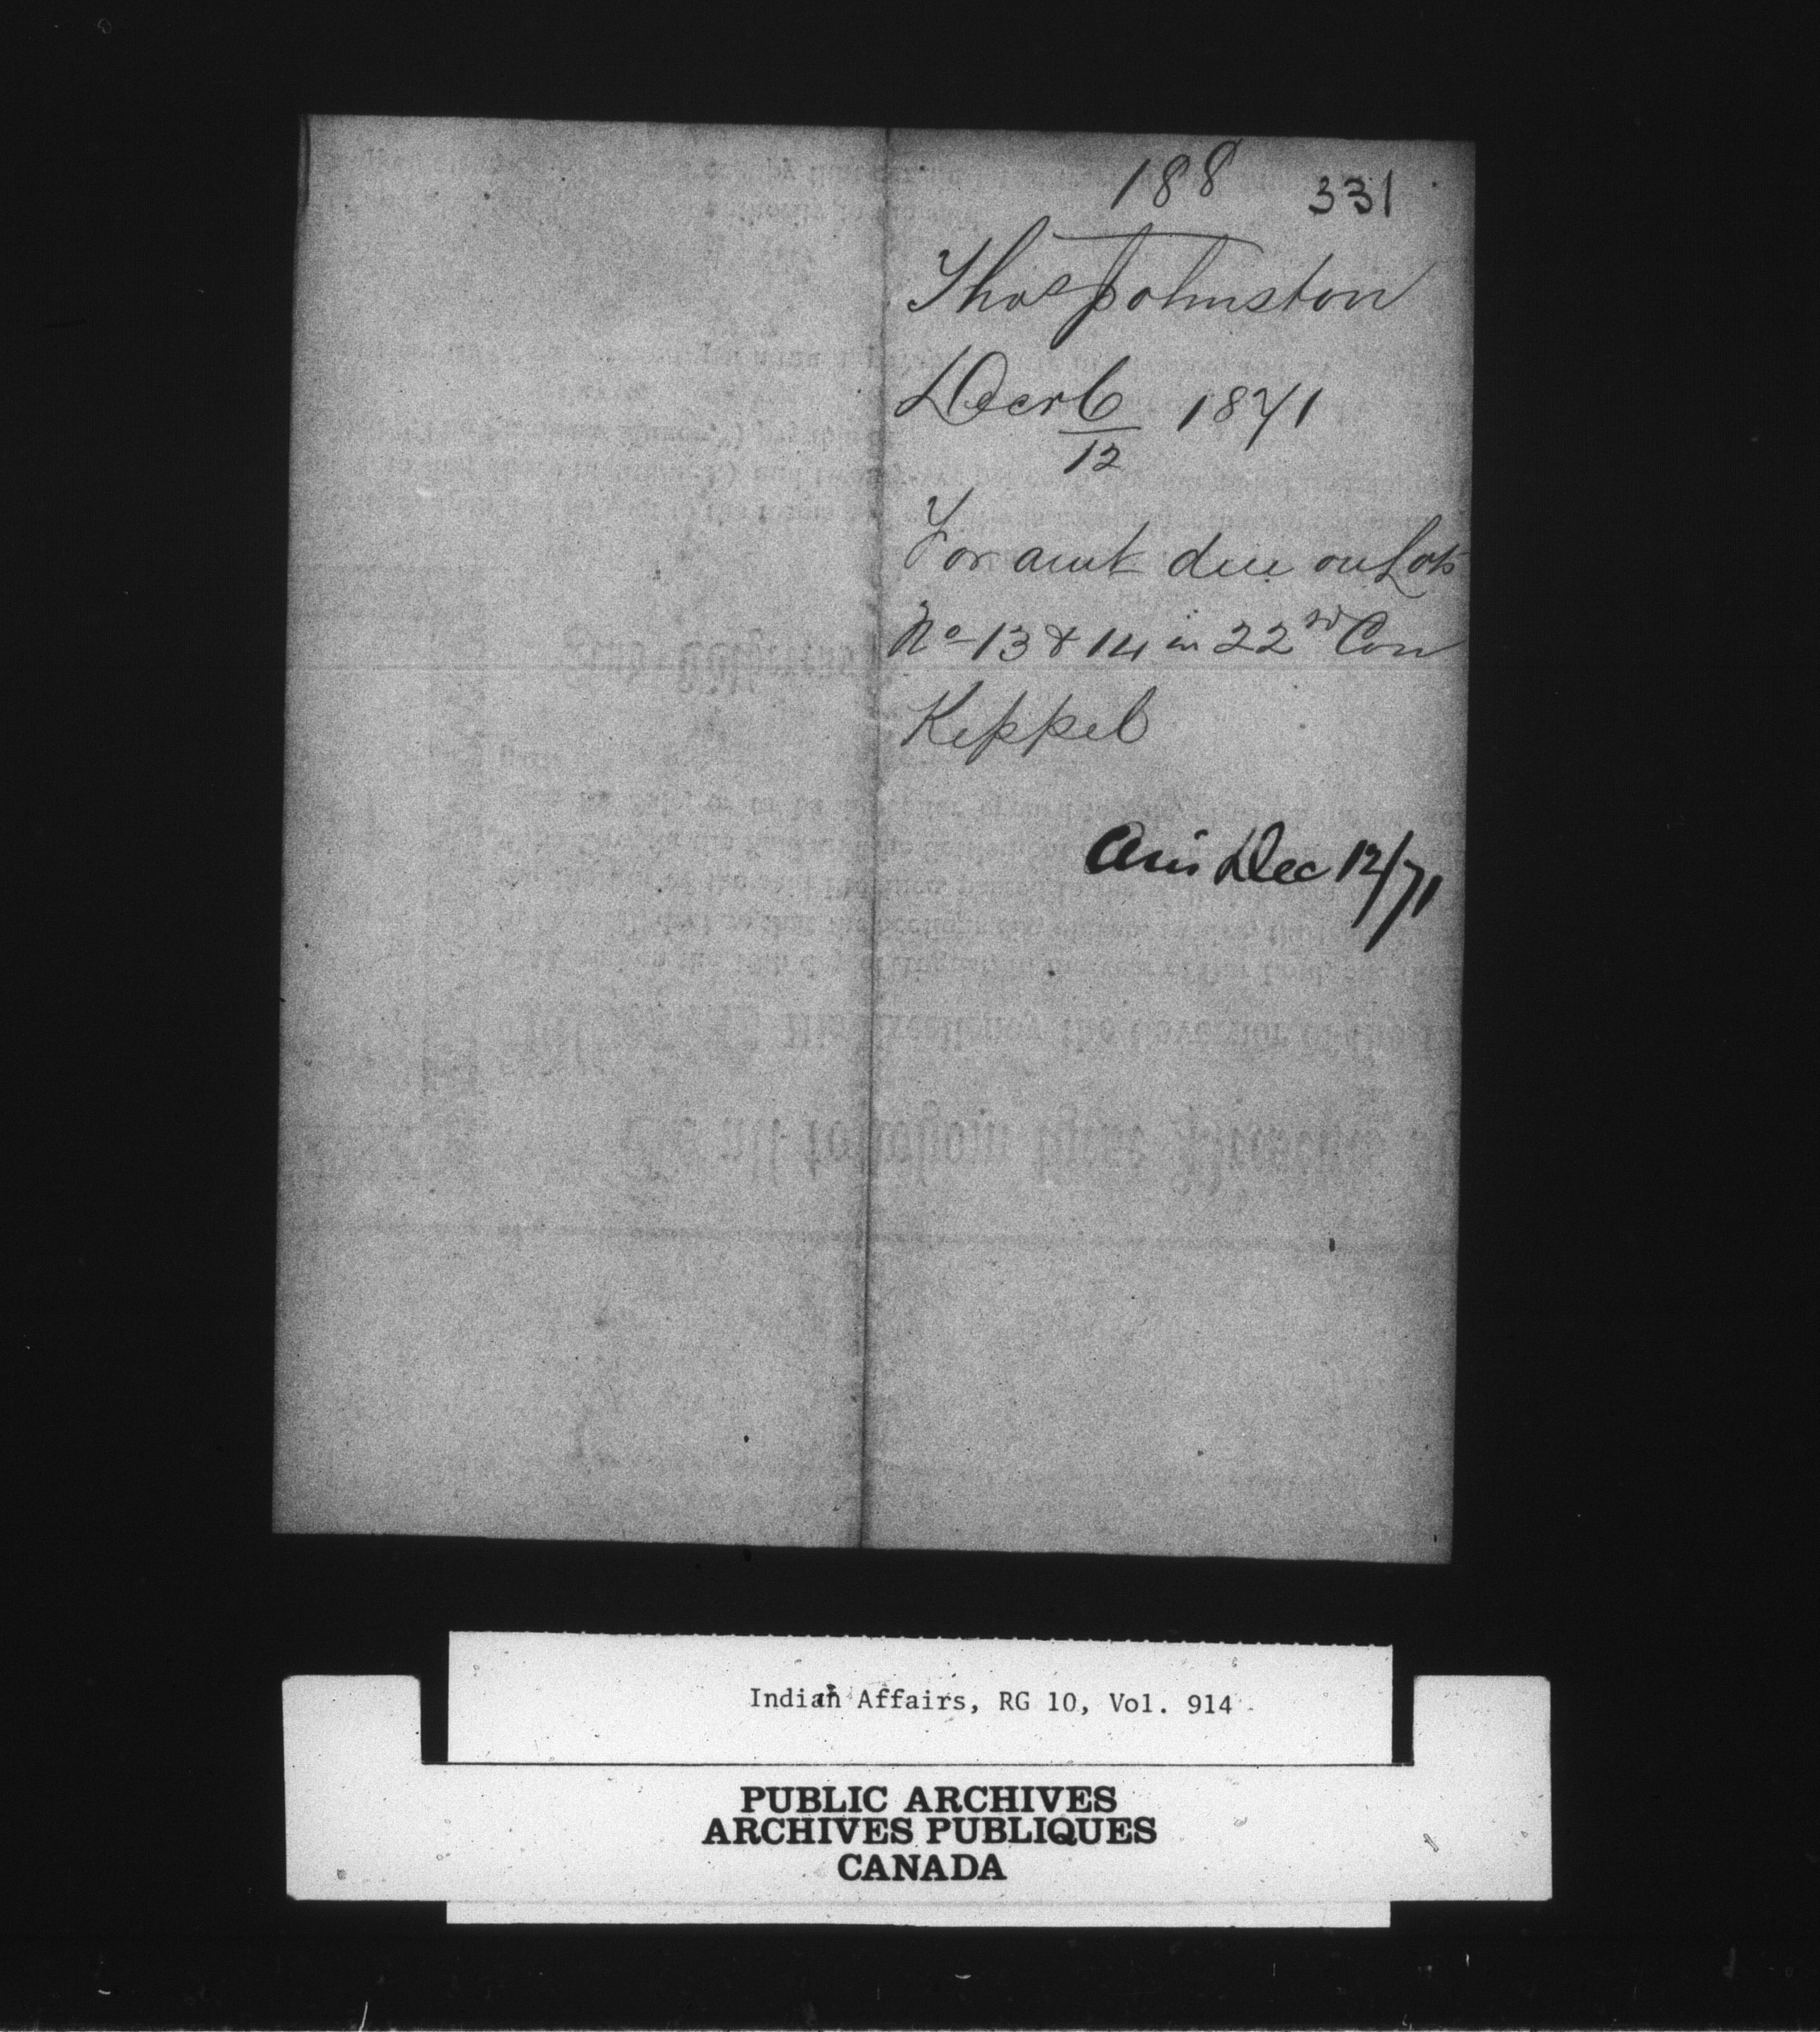 188 331
Thos Johnston
Decr 6/12 1871
For amt due on Lots
No 13 & 14 in 22nd Con
Keppel
Ans Dec 12/71
Indian Affairs, RG 10, Vol. 914
PUBLIC ARCHIVES
ARCHIVES PUBLIQUES
CANADA